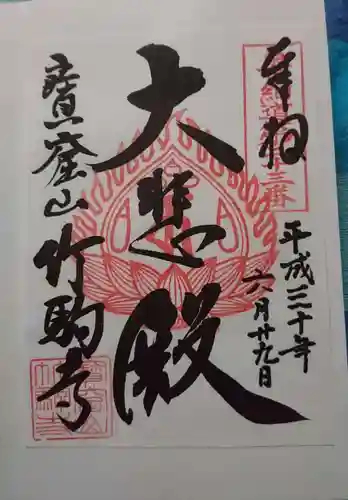 奉拝
三番
平成三十年
六月廿九日
大悲殿
寶窟山 竹駒寺